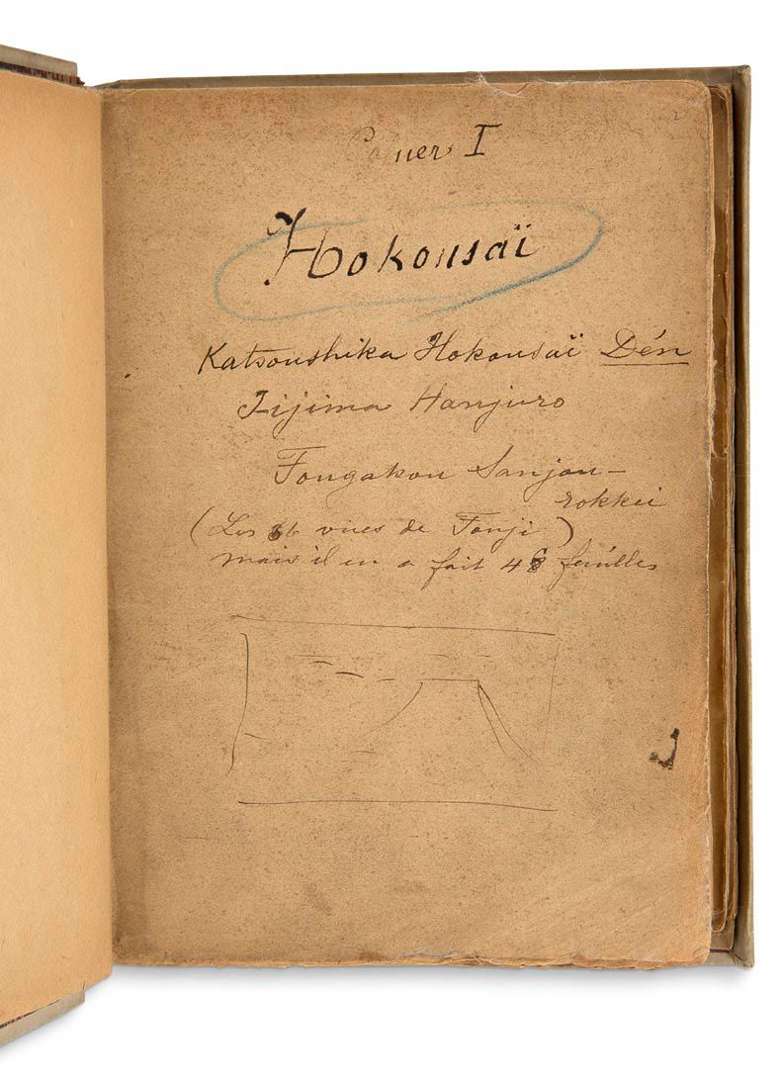 Cahier I
Hokousaï
Katsoushika Hokousaï Dén
Iijima Hanjuro
Fougakou Sanjou-
rokkei
(Les 36 vues de Fouji)
mais il en a fait 46 feuilles
2